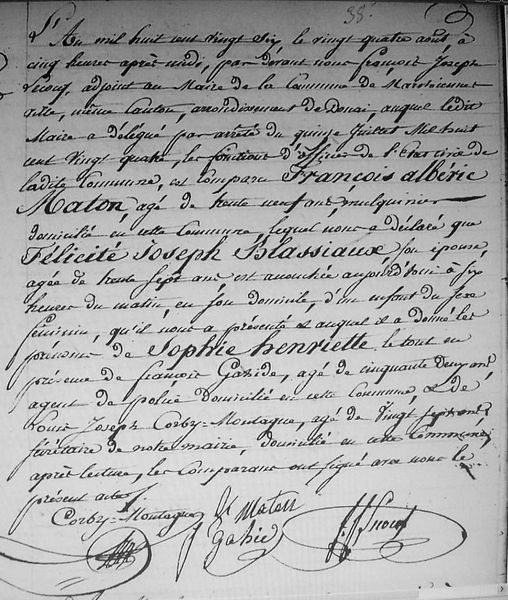 38.
L'An mil huit cent vingt six le vingt quatre août, à
cinq heures après midi, par devant nous françois Joseph
adjoint au Maire de la Commune de Marchiennes
ville, même Canton, arrondissement de Douai, auquel ledit
Maire a délégué par arrêté du quinze Juillet Mil huit
cent vingt quatre, les fonctions d'officier de l'Etat civil de
ladite Commune, est Comparu François albéric
Maton, agé de trente neuf ans, mulquinier
domicilié en cette Commune, lequel nous a déclaré que
Félicité Joseph Blassiaux son épouse,
agée de trente sept ans, est accouchée aujourd'hui à six
heures du matin, en son domicile, d'un enfant du sexe
féminin, qu'il nous a présenté et auquel il a donné les
prénoms de Sophie henriette le tout en
présence de françois Gabide, agé de cinquante deux ans
agent de police domicilié en cette Commune, & de
Louis Joseph Corby-Montagne, agé de Vingt sept ans,
sécrétaire de notre mairie, domicilié en cette Commune,
après lecture, les Comparans ont signé avec nous le
présent acte.
Corby-Montagne
Maton